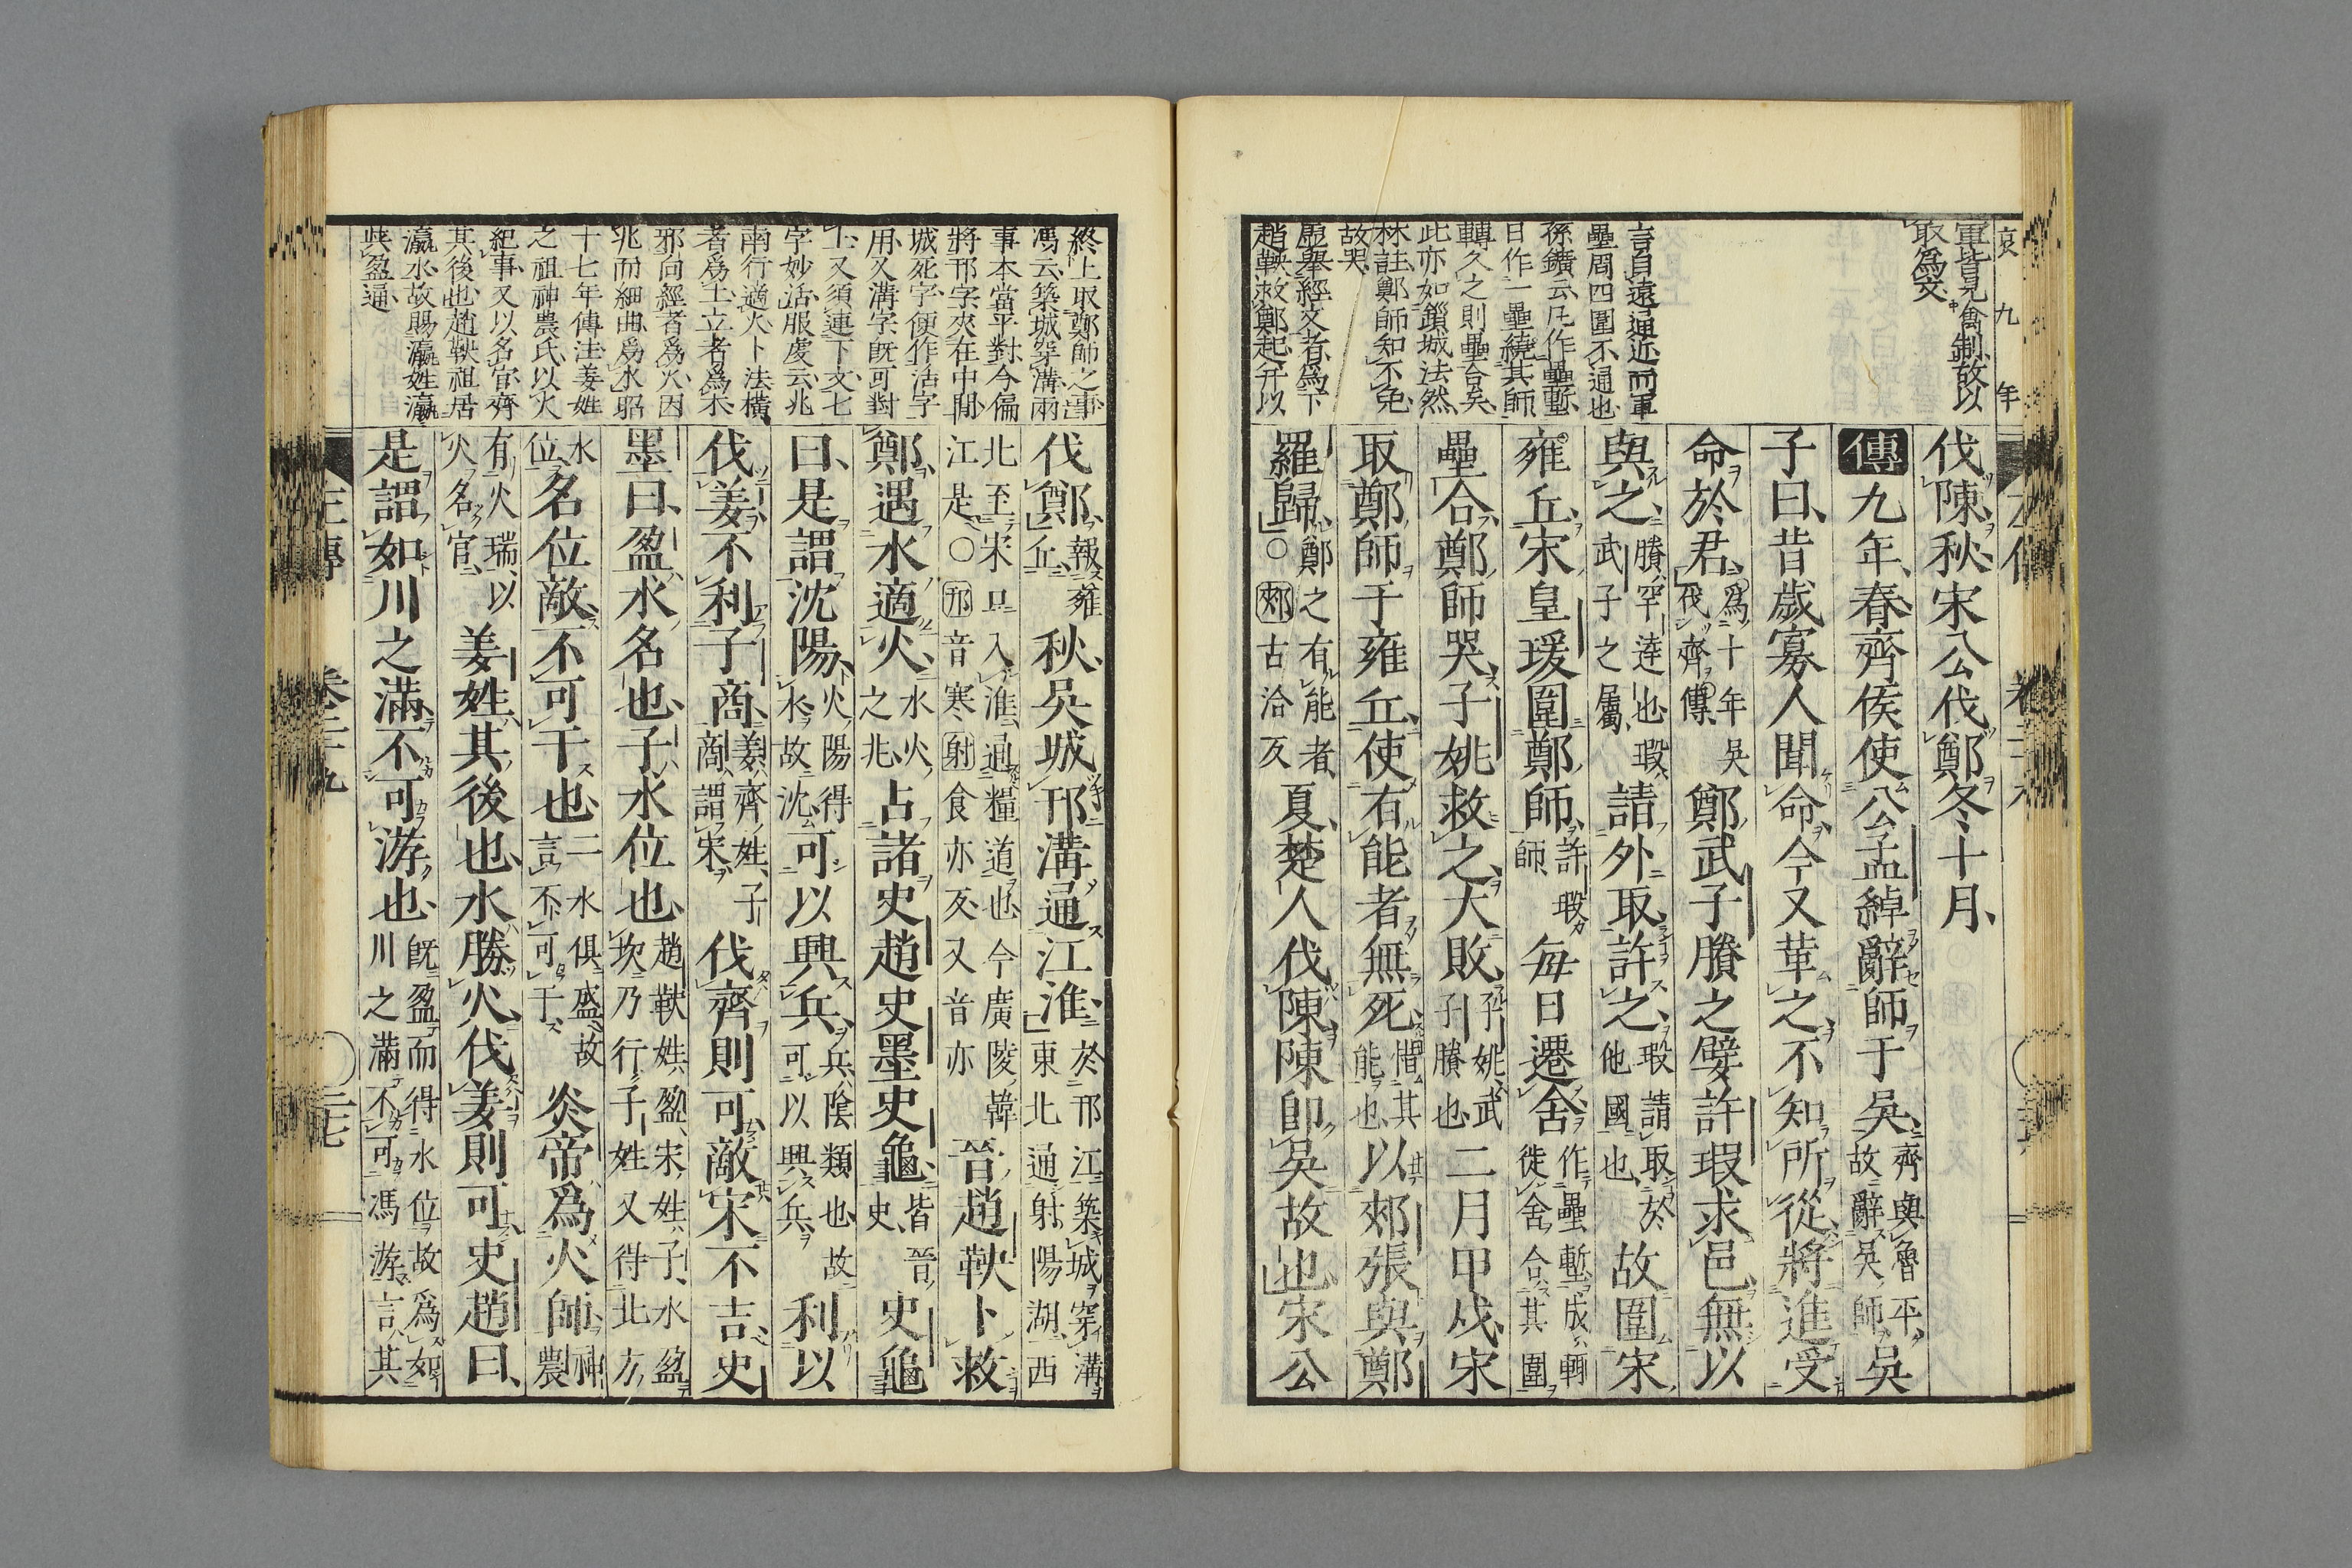 哀九年
軍皆見禽制故以
取爲文
言自遠逼近而軍
壘周四圍不通也
孫鑛云凡作壘塹
日作一壘繞其師
轉久之則壘合矣
此亦如鎖城法然
林註鄭師知不免
故哭
歷舉經文者爲下
趙鞅救鄭起幷以
伐陳秋宋公伐鄭冬十月
傳九年春齊侯使公孟綽辭師于吳齊與魯平故辭吳師吳
子曰昔歲寡人聞命今又革之不知所從將進受
命於君爲十年吳伐齊傳鄭武子賸之嬖許瑕求邑無以
與之賸罕達也瑕武子之屬請外取許之瑕請取於他國也故圍宋
雍丘宋皇瑗圍鄭師許瑕師每日遷舍作壘塹成輒徙舍合其圍
壘合鄭師哭子姚救之大敗子姚武子賸也二月甲戌宋
取鄭師于雍丘使有能者無死惜其能也以郟張與鄭
羅歸鄭之有能者〇郟古洽反夏楚人伐陳陳卽吳故也宋公
終上取鄭師之事
馮云築城穿溝兩
事本當平對今偏
將邗字夾在中間
城死字便作活字
用又溝字旣可對
上又須連下文七
字妙活服虔云兆
南行適火卜法橫
者爲土立者爲木
邪向經者爲火因
兆而細曲爲水昭
十七年傳注姜姓
之祖神農氏以火
紀事又以名官齊
其後也趙鞅祖居
瀛水故賜瀛姓瀛
與盈通
伐鄭報雍丘秋吳城邗溝通江淮於邗江築城穿溝東北通射陽湖西
北至宋口入淮通糧道也今廣陵韓江是〇邗音寒射食亦反又音亦晉趙鞅卜救
鄭遇水適火水火之兆占諸史趙史墨史龜皆晉史史龜
曰是謂沈陽火陽得水故沈可以興兵兵陰類也故可以興兵利以
伐姜不利子商姜齊姓子商謂宋伐齊則可敵宋不吉史
墨曰盈水名也子水位也趙鞅姓盈宋姓子水盈坎乃行子姓又得北方
水位名位敵不可干也二水俱盛故言不可干炎帝爲火師神農
有火瑞以火名官姜姓其後也水勝火伐姜則可史趙曰
是謂如川之滿不可游也旣盈而得水位故爲如川之滿不可馮游言其